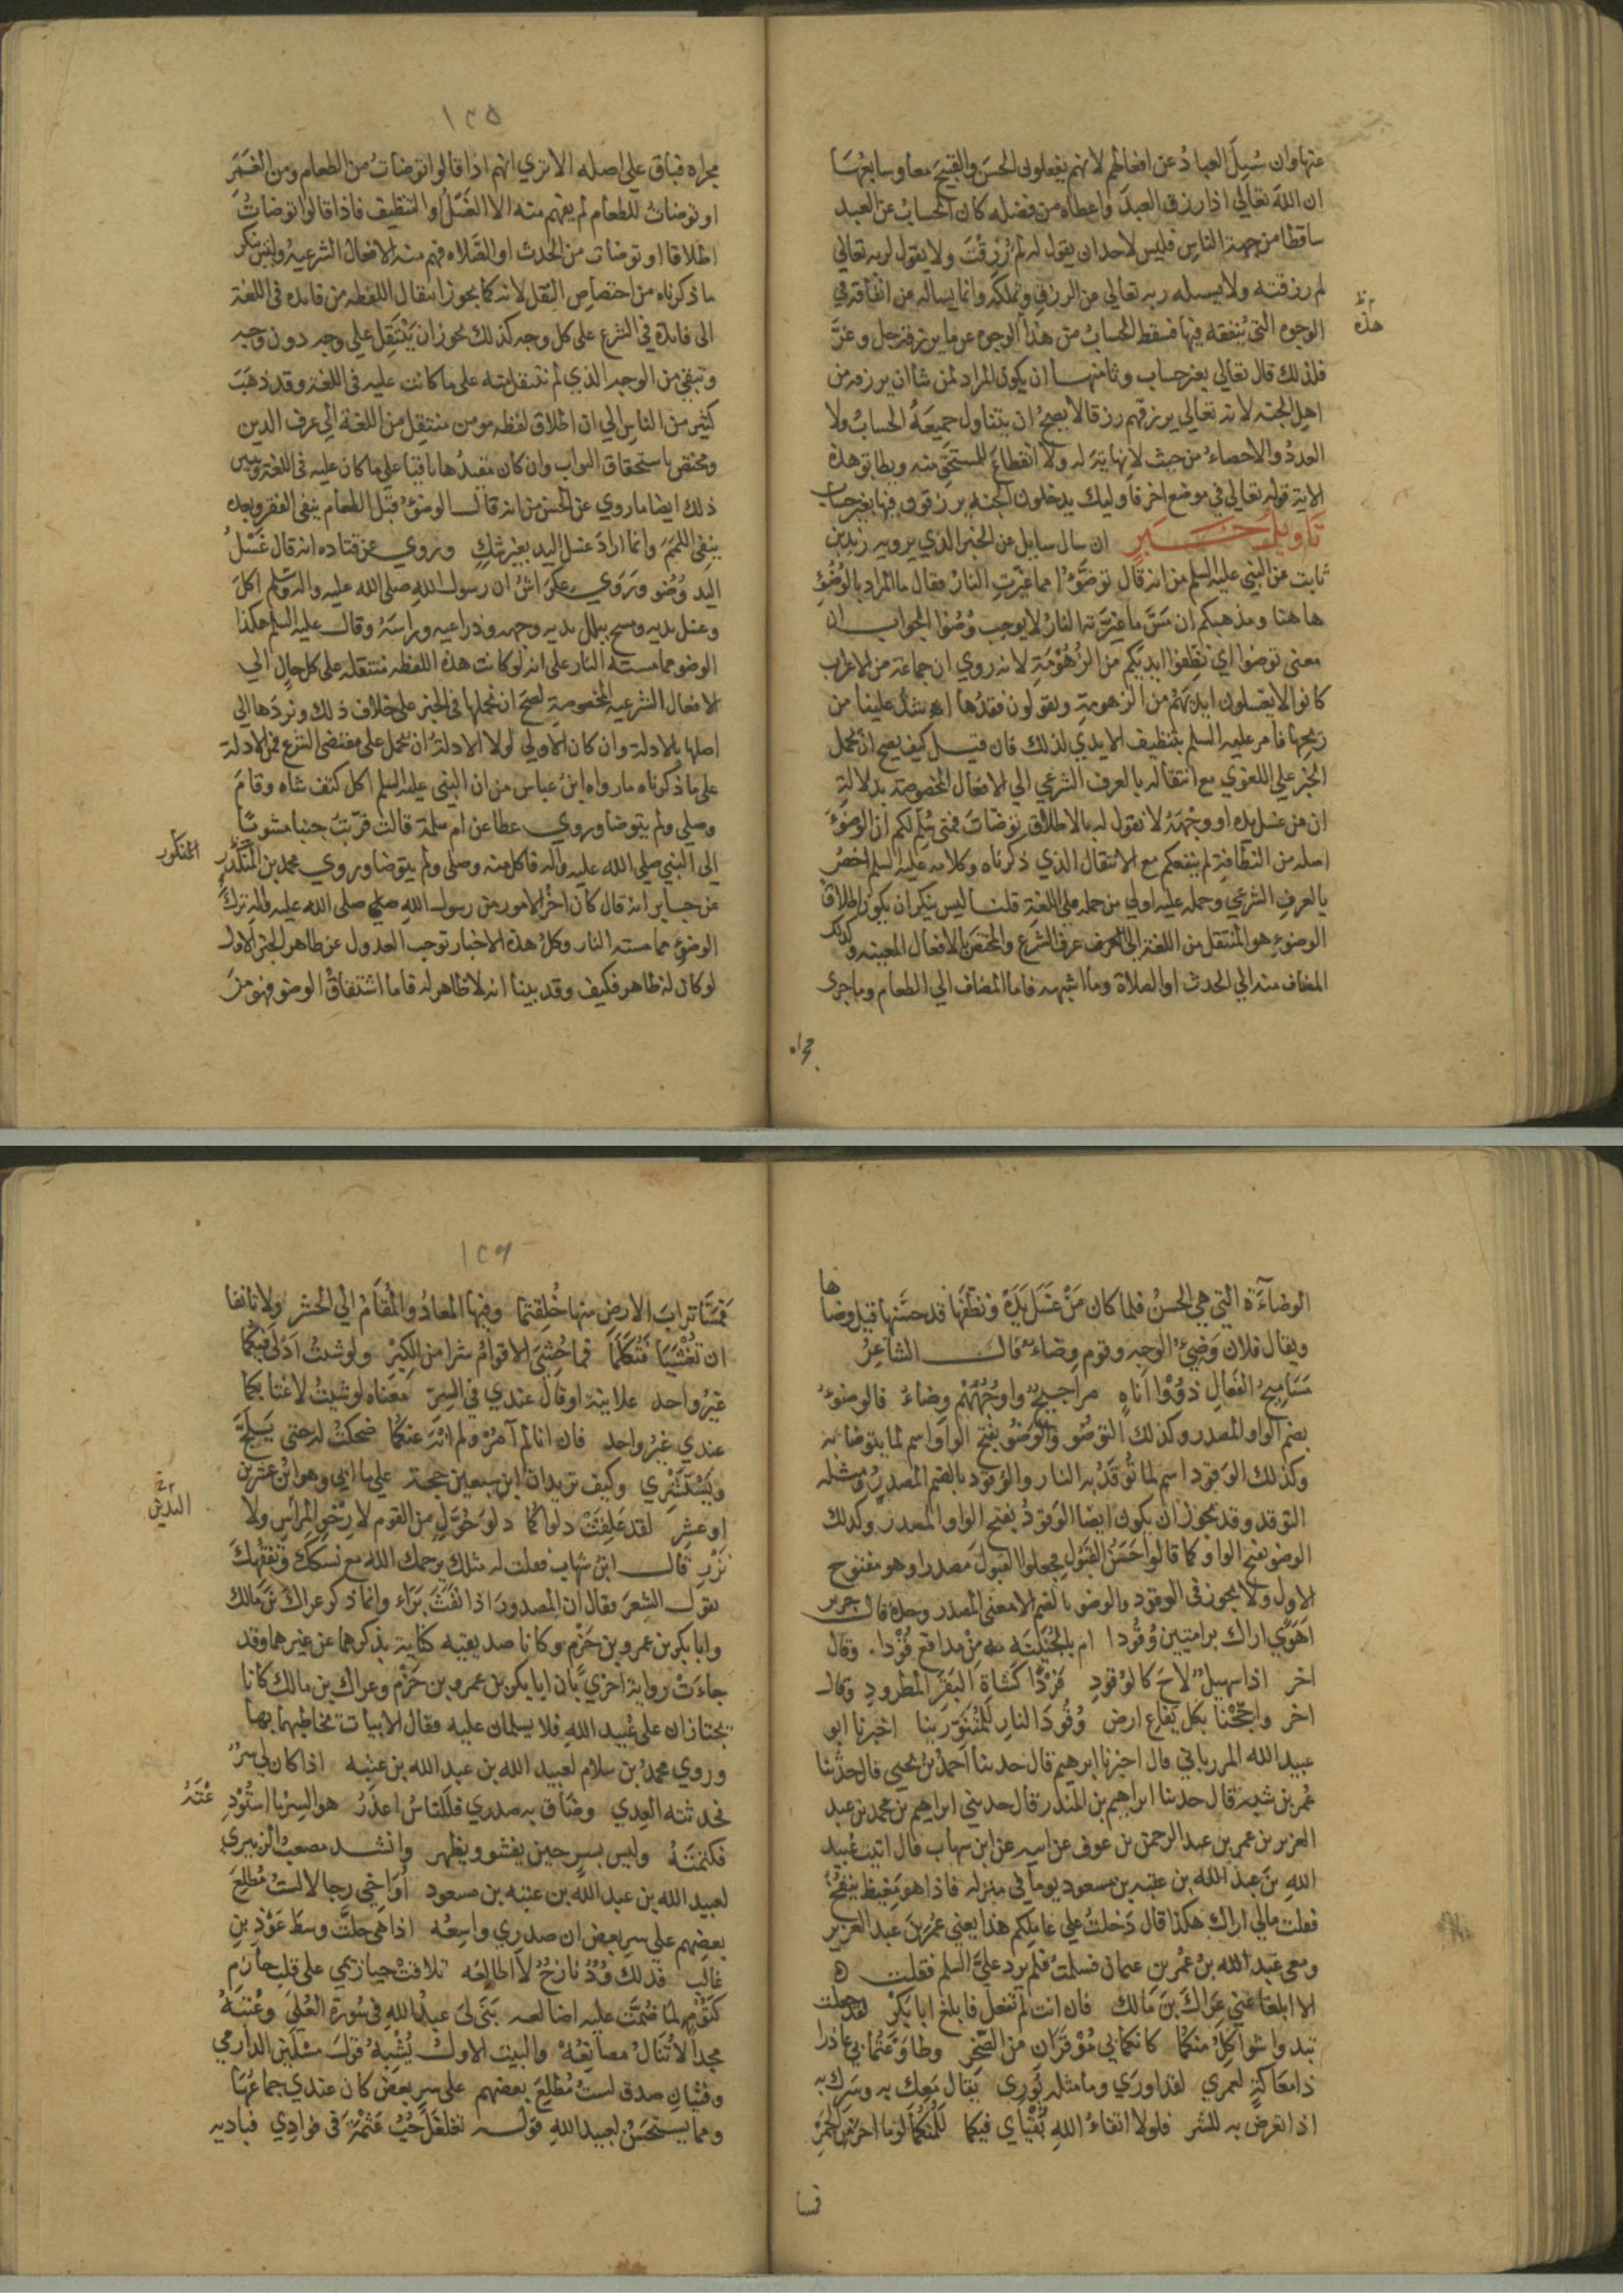 عنها وان سُيِلَ العبادُ عن افعالهم لانهم يفعلون الحسَن والقبيحَ معا وسابعُهَا
ان اللهَ تعالي اذا رزق العبدَ واعطاه من فضله كان الحسابُ عن العبد
ساقطا من جهة الناسِ فليس لاحد ان يقول له لم رُزِقْتَ ولا يقول لربه تعالي
لم رزقته ولا يسله ربه تعالي عن الرزقِ وانما يساله عن انفاقه في
الوجوه التي يُنفقه فيها فسقط الحسابُ من هذا الوجوه عن ما يرزقه جل وعزَّ
هذه
فلذلك قال تعالي بغير حساب وثامنهـا ان يكون المراد لمن شا ان يرزقه من
اهل الجنه لانه تعالي يرزقهم رزقا لا يصحُ ان يتناول جميعَهُ الحسابُ ولا
العددُ والاحصاءُ من حيث لا نهايةَ له ولا انقطاعَ للمستحق منه ويطابق هذة
الاية قوله تعالي في موضع اخر فاوليك يدخلون الجنه يرزقون فيها بغير حساب
تَاويلُ خـــبَرٍ ان سال سايل عن الخبر الذي يرويه زيد بن
ثابت عن النبي عليه السلم من انه قال توضَّؤا مما غيّرتِ النارُ فقال ما المراد بالوُضُؤِ
هاهنا ومذهبكم ان مَسَّ ما غيّرته النارُ لا يوجب وُضُوا الجواب ان
معنى توضوا اي نظِفوا ايديَكم من الزُهُوْمَةِ لانه روي ان جماعة من الاعراب
كانوا لا يغسلون ايديَهُمْ من الزهومةِ ويقولون فقدُها اشدُّ علينا من
ريحِها فامر عليه السلم بتنظيف الايدي لذلك فان قيــل كيف يصح ان تحمل
الخبر على اللغوي مع انتقاله بالعرف الشرعي الي الافعال المخصوصة بدلالةِ
ان من غسل يده او وجْهَهُ لا يقول له بالاطلاق توضّات فمتى سُلِم لكم ان الوضؤَ
اصله من النظافةِ لم ينفعكم مع الانتقال الذي ذكرناه وكلامه عليه السلم اخصُ
بالعرفِ الشرعي وحمله عليه اولي من حمله على اللغةِ قلنــا ليس ينكر ان يكون اطلاق
الوضؤِ هو المنتقل من اللغة الى عرف الشرع والمختصَ بالافعال المعينه وكذلك
المضاف منه الي الحدث او الصلاة وما اشبهه فاما المضاف الي الطعام وما جرى
مجراه
١٢٥
مجراه فباق علي اصله الا تري انهم اذا قالوا توضاتُ من الطعام ومن الغَمَرَ
او توضاتُ للطعام لم يفهم منه الا الغَسلُ او التنظيف فاذا قالوا توضاتُ
اطلاقا او توضات من الحدث او الصّلاه فهم منه الافعال الشرعيهُ وليس ينكر
ما ذكرناه من اختصاص النقل لانه كما يجوز انتقال اللفظه من فايده في اللغة
الى فايدة في الشرع على كل وجه كذلك يجوز ان يَنْتَقِل علي وجه دون وجه
وتبقى من الوجه الذي لم تنتقل منه علي ما كانت عليه في اللغة وقد ذهَبَ
كثير من الناس الي ان اطلاق لفظه مومن منتقِل من اللغة الي عرف الدين
ومختص باستحقاق الثواب وان كان مقيدُها باقيا علي ما كان عليه في اللغة ويبين
ذلك ايضا ما روي عن الحسن من انه قال الوضؤُ قَبْل الطعام ينفي الفقر وبعده
ينفِي اللممَ وانما ارادَ غسل اليد بغير شكٍ وروي عن قتاده انه قال غَسْلُ
اليد وُضُو وَرَوَي عِكرَاش ان رسول الله صلى الله عليه واله وسلم اكلَ
وغسل يديه ومسح ببلل يديه وجهه وذراعيه وراسَهُ وقال عليه السلم هكذا
الوضو مما مسته النار على انه لو كانت هذة اللفظه منتقله على كل حال الي
الافعال الشرعيه المخصوصةِ لصحَ ان نحملها في الخبر على خلاف ذلك ونردَها الي
اصلها بالادلة وان كان الاولي لولا الادلةُ ان تحمل على مقتضى الشرع فمن الادلة
على ما ذكرناه ما رواه ابنُ عباس من ان النبي عليه السلم اكل كتف شاه وقامَ
وصلى ولم يتوضا وروي عطا عن ام سلمة قالت قرّبتُ جنبا مشويًا
الى النبي صلى الله عليه واله فاكل منه وصلى ولم يتوضا وروي محمد بن المنكدر
المنكدر
عن جابر انه قال كان اخرُ الامور من رسول اللهِ صلى الله عليه واله تركَ
الوضؤِ مما مسته النار وكلُ هذة الاخبار توجب العدول عن ظاهر الخبر الاول
لو كان له ظاهر فكيف وقد بينا انه لا ظاهر له فاما اشتقاقُ الوضو فهو من
الوضآءَة التي هي الحسنُ فلما كان مَنْ غسَل يَدَهُ ونظّفها قد حسَّنها قيل وضاها
ويقال فلان وَضِيءُ الوجه وقوم وِضاء قالـــ الشاعِرُ
مَسَاميحُ الفَعالِ ذوُوْا اناهٍ مراجيحٌ واوجُهُهُمْ وِضاءُ فالوضؤُ
بضم الواو المصدر وكذلك التوضُو والوَضُو بفتح الواو اسم لما يتوضا به
وكذلك الوَقود اسم لما تُوقَدُ به النار والوُقود بالضم المصدرُ ومثله
التوقد وقد يجوز ان يكون ايضا الوَقودُ بفتح الواو المصدر وكذلك
الوضو بفتح الواو كما قالوا حَسَنُ القَبُول فجعلوا القبولَ مصدرا وهو مفتوح
الاول ولا يجوز في الوقود والوضو بالضم الا معنى المصدر وحدهُ قال جرير
اَهَوًي اراك برامتين وُقُودا ام بالجُنَيْنَة من مدافع اُوْدا. وقال
اخر اذا سهيلٌ لاحَ كالوُقودِ فَرْدًا كَشاةِ البَقَرِ المطرودِ وقال
اخر واجّجْنا بكل يَفاعِ ارض وُقُودَ النارِ للمُتَنَوّرينا اخبرنا ابو
عبيد الله المرزباني قال اخبرنا ابرهيم قال حدثنا احمدُ بنُ يحيى قال حدّثنا
عُمر بن شبة قال حدثنا ابراهيم بن المنذر قال حدثني ابراهيم بن محمد بن عبد
العزيز بن عمر بن عبد الرحمن بن عوف عن ابيه عن ابن شهاب قال اتيت عُبيد
اللهِ بنَ عبد الله بن عتبه بن مسعود يوما في منزله فاذا هو مَغيظ ينفخُ
فقلت مالي اراك هكذا قال دَخلتُ علي عاملِكم هذا يعني عُمرَ بنَ عبد العزيز
ومعى عبد الله بنُ عُمر بن عثمان فسلمتُ فلم يرد عليّ السلم فقلت ه
الا ابلغا عني عِرَاكَ بنَ مَالك فان انت لم تفعل فابلغ ابا بَكْرِ لقد جعلت
تبدوا شواكلُ منكما كانكما بي مُوْقَرَان مِن الصَّخرِ وطاوَعْتُما بي عاذرا
ذا معاكةٍ لعمري لقد اورَي وما مثله يُوري يقال مَعِك به وسَرِك به
اذا تعرض به للشر فلولا اتقاءُ اللهِ بُقيَاي فيكما للُمتُكما لوما احرَّ من الجَمْرِ
فمسا
١٢٦
فَمَسَّا ترابَ الارضِ منها خُلِقْتُما وفيها المعادُ والمُقامُ الي الحشر ولا تانفا
ان تُغْشَيَا فَتُكَلّما فما حُشِيَ الاقوامُ شرا من الكِبْرِ ولو شئتُ اَدْلَى فيكما
غيرُ واحد علانيةً او قال عندي في السِرّ معناه لو شيتُ لاغتابكما
عندي غيرُ واحد فان انا لم آمُرْ ولم انْهَ عنكما ضحكتُ له حتى يَسْلَجَّ
ويَسْتَشْرِي وكيف تريدان ابن سبعين حجة علي ما اتي وهو ابنُ عشرين
البدين
او عشرِ لقد عَلِقَتْ دلواكما دلوَ حُوّلٍ من القوم لا رِخْوِ المراس ولا
نَزْرِ قالـ ابن شهاب فقلت له مثلك يرحمك الله مع نسكك وفِقْهِكَ
يقول الشِعرَ فقال ان المصدورَ اذا نَفَثَ بَرَاء وانما ذكر عراك بن مالك
وابا بكر بن عمرو بن حَزْمٍ وكانا صديقيه كناية بذكرهما عن غيرهما وقد
جاءَتْ رواية اخرَيَ بان ابا بكر بن عمرو بن حَزْمٍ وعراك بن مالك كانا
يجتازان على عُبيد اللهِ فلا يسلمان عليه فقال الابيات يخاطبهما بها
وروي محمدُ بن سلام لعبيد الله بن عبد الله بن عتبه اذا كان لي سرٌ
فحدثته العِدي وضَاق به صدري فللنّاسُ اعذَرُ هو السِرّ ما استُوْدِ
عْتَهُ
فكتمتَهُ وليس بسرٍ حين يفشو ويظهر وانشد مصعبُ الزبيري
لعبيد الله بن عبد الله بن عتبه بن مسعود اُوَاخِي رجالا لستُ مُطْلِعَ
بعضِهم على سِر بعضٍ ان صدري واسِعُه اذا هي حلتْ وسطَ عَوْذِ بنِ
غالبٍ فذلك وُدٌ نازحٌ لا اطالعُه تلافتْ حيازيمي على قلب حازمٍ
كَتُوْمٍ لما ضُمّتْ عليه اضالعه بَنَى لى عبدُ اللهِ في سُورةِ العُلىَ وعُتبَةُ
مجدًا لاتُنالُ مصانِعُهْ والبيت الاولُ يُشْبِهُ قولَ مسْكين الدارمي
وفتيانِ صدق لستُ مُطْلِعَ بعضِهم على سر بعض كان عندي جماعُها
ومما يستحسَنُ لعبيد اللهِ قوله تغلغَلَ حُبُ عَثْمَةَ في فوادِي فباديه